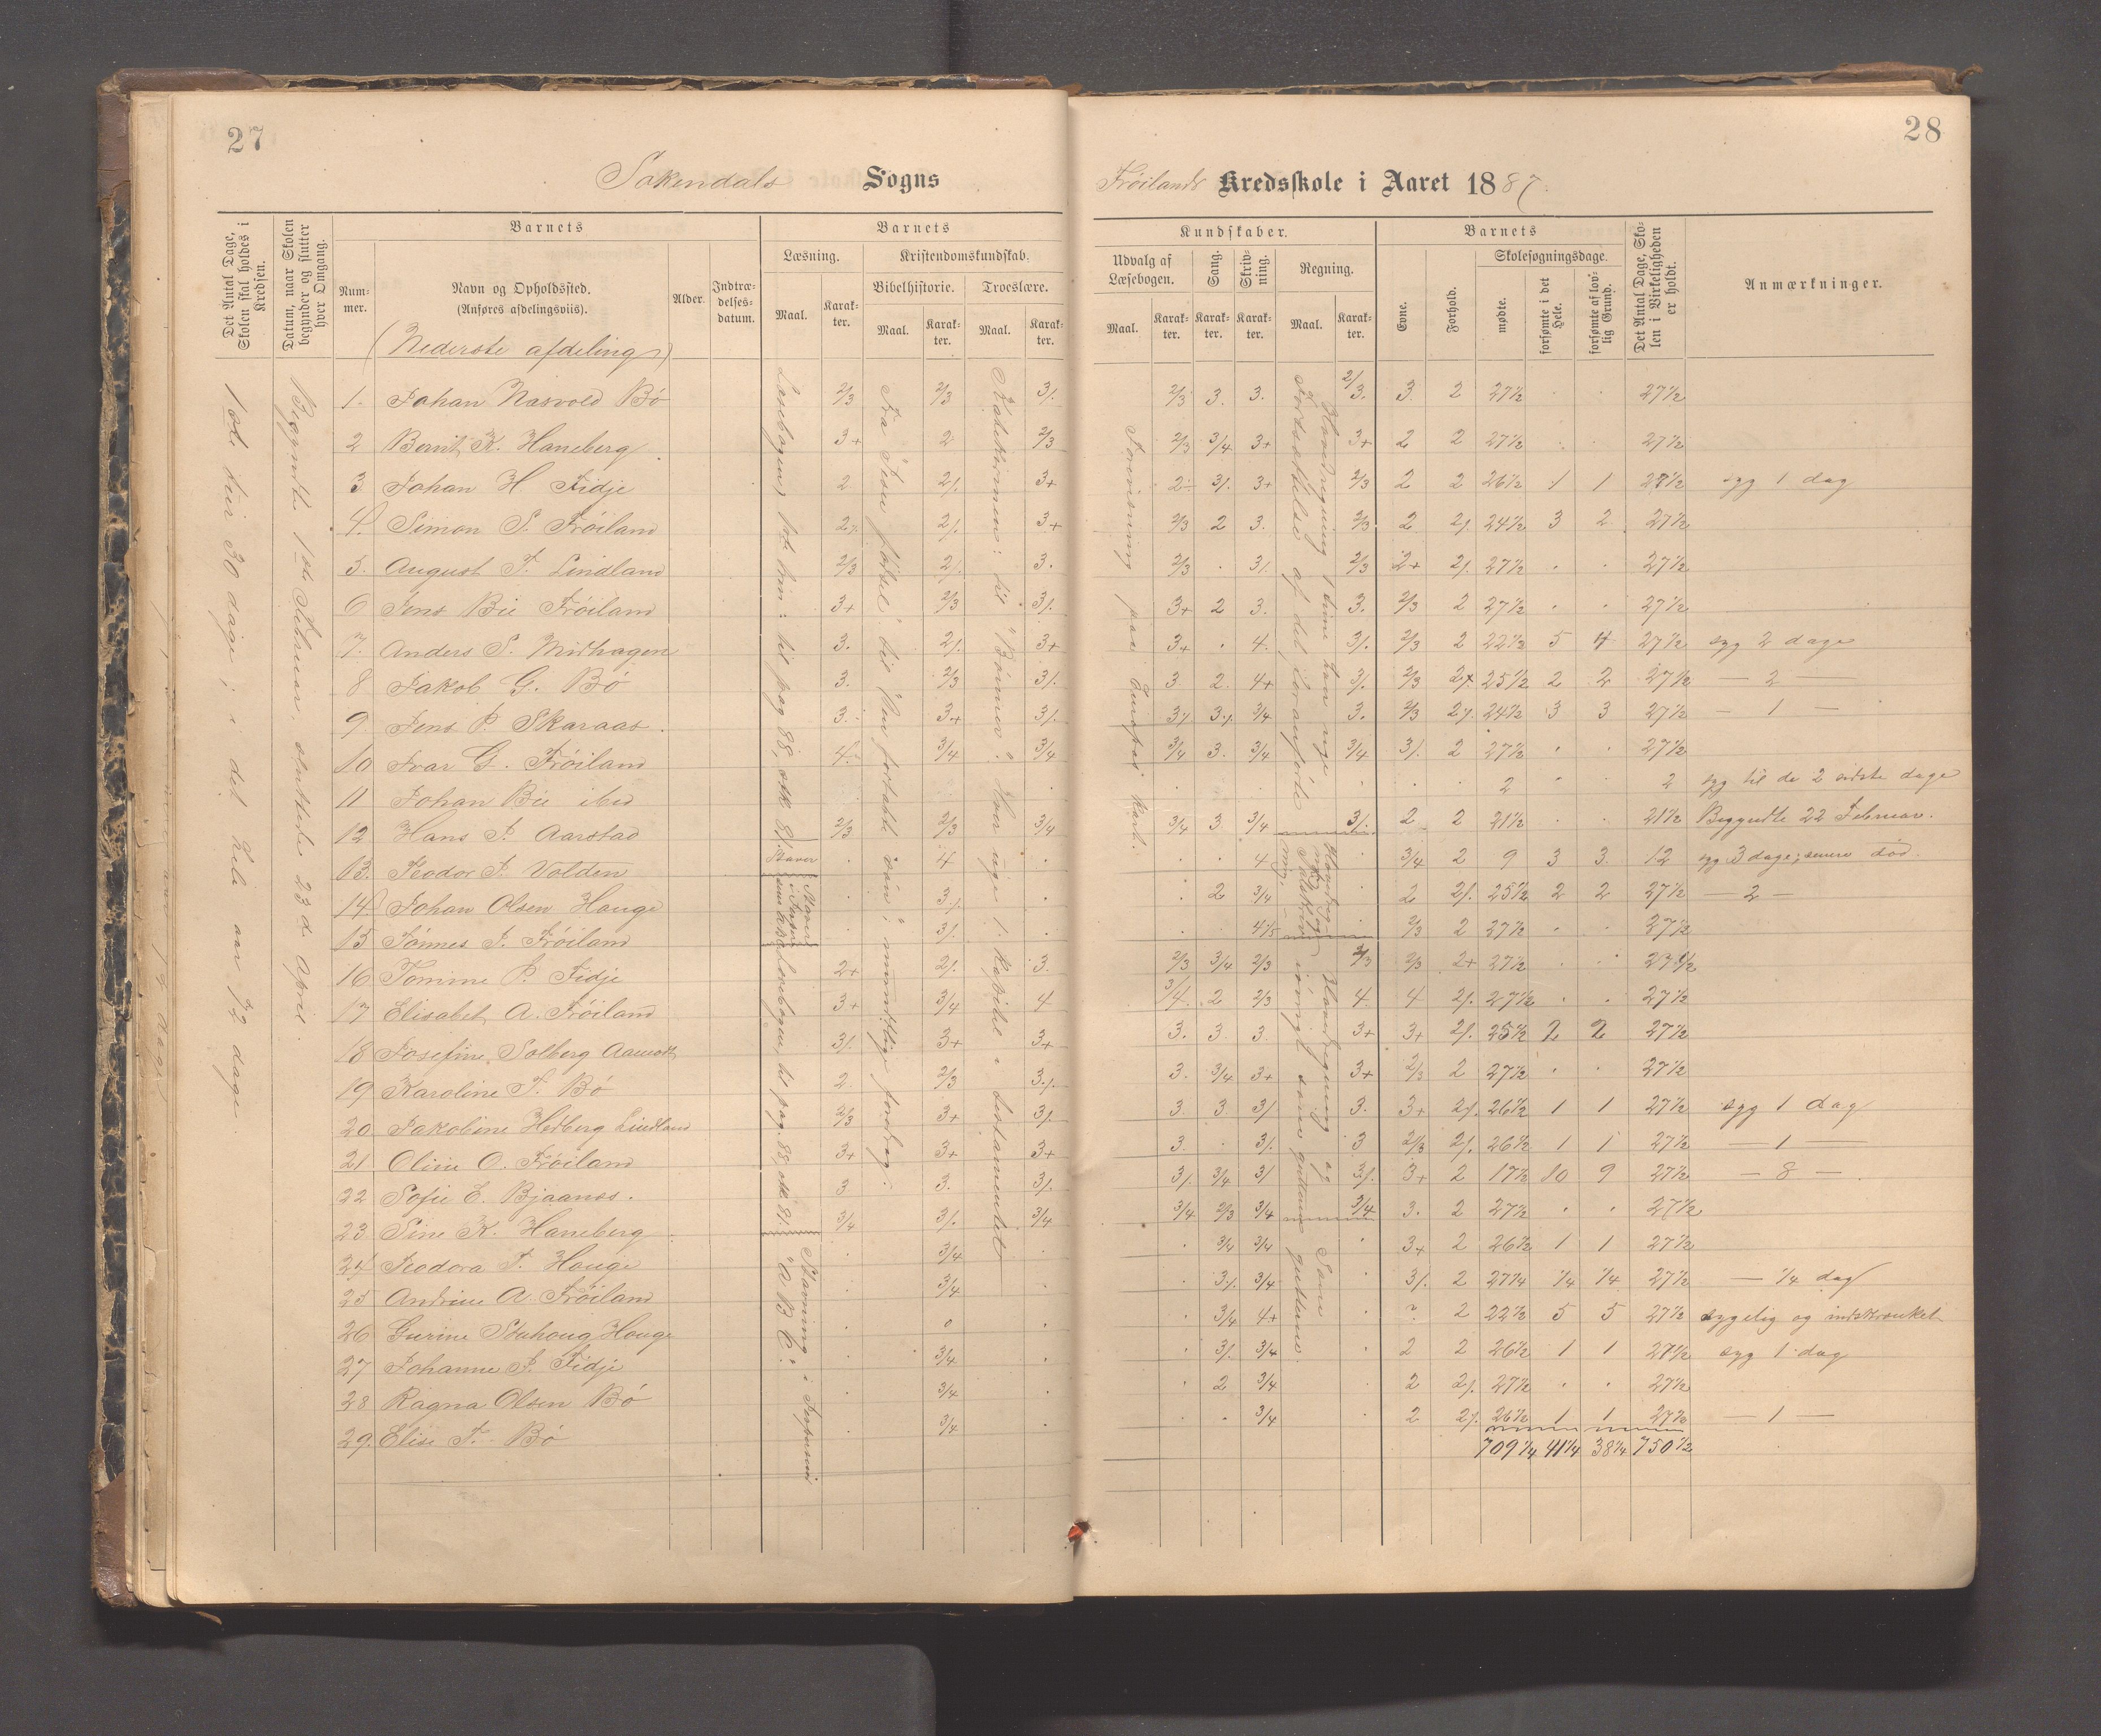 27
28
Sokendals Sogns
Frøilands Kredsskole i Aaret 1887.
Det Antal Dage, Skolen skal holdes i Kredsen.
Datum, naar Skolen begynder og slutter hver Omgang.
Barnets
Nummer.
Navn og Opholdssted.
(Anføres afdelingsviis).
(Nederste afdeling)
Alder.
Indtrædelsesdatum.
Barnets
Læsning.
Kristendomskundskab.
Bibelhistorie.
Troeslære.
Maal.
Karakter.
Maal.
Karakter.
Maal.
Karakter.
Kundskaber.
Udvalg af Læsebogen.
Sang.
Skrivning.
Regning.
Maal.
Karakter.
Karakter.
Karakter.
Maal.
Karakter.
Barnets
Evne.
Forhold.
Skolesøgningsdage.
mødte.
forsømte i det Hele.
forsømte af lovlig Grund.
Det Antal Dage, Skolen i Virkeligheden er holdt.
Anmærkninger.
30 dage; i det hele aar 72 dage.
Begyndte 1ste Februar sluttede 23 d. April.
Læsebogen,
til pag 88,
Fra
til
fortabte søn", mundtlige foredrag.
Forevisning paa Europas Kart.
Hovedregning
Fortsættelse af det foranførte
Hovedregning og
iøvrigt som guttene
Som guttene
Stavning i
"A B C".
1. Johan Nasvold Bø 2/3 2/3 3/. 2/3 3. 3. 2/3. 3. 2 27½ . . 27½
2 Bernt K. Haneberg 3+ 2 2/3 2/3 3/4 3+ 3+ 2 2 27½ . . 27½
3 Johan H. Fidje 2 2/. 3+ 2 3/. 3+ 2/3 2 2 26½ 1 1 27½ syg 1 dag
4. Simon S. Frøiland 2/. 2/. 3+ 2/3 2 3. 2/3 2 2/. 24½ 3 2 27½
5. August T. Lindland 2/3 2/. 3. 2/3 . 3/. 2/3 2+ 2/. 27½ . . 27½
6 Jens Bie Frøiland 3+ 2/3 3/. 3+ 2 3. 3. 2/3 2 27½ . . 27½
7. Anders S. Midhagen 3. 2/. 3+ 3+ . 4. 3/. 2/3 2 22½ 5 4 27½ syg 2 dage
8 Jakob G. Bø 3. 2/3 3/. 3 2. 4+ 3/. 2/3 2/. 25½ 2 2 27½ — 2 —
9. Jens P. Skaraas. 3. 3+ 3/. 3/. 3/. 3/4 3. 2/3 2/. 24½ 3 3 27½ — 1 —
10 Ivar G. Frøiland 4. 3/4 3/4 3/4 3. 3/4 3/4 3/. 2 27½ . . 27½
11 Johan Bie ibid . . . . . 2 . . 2 syg til de 2 sidste dage
12 Hans P. Aarstad 2/3 2/3 3/4 3/4 3 3/4 3/. 2 2 21½ . . 21½ Begyndte 22 Februar.
13. Teodor T. Volden . 4 . . . 4 . 3/4 2 9 3 3. 12 syg 3 dage; senere død.
14 Johan Olsen Hauge . 3/. . . 2 3/4 . 2 2/. 25½ 2 2 27½ — 2 —
15 Tønnes J. Frøiland . 3/. . . . 4/5 2/3 2 27½ . . 27½
16 Tomine P. Fidje 2+ 2/. 3. 2/3 3/4 2/3 2/3 2/3 2+ 27½ . . 27½
17 Elisabet A. Frøiland 3+ 3/4 4 3/4. 2 2/3 4. 4 2/. 27½ . . 27½
18 Josefine Solberg Aamodt 3/. 3+ 3+ 3. 3 3. 3+ 3+ 2/. 25½ 2 2 27½
19 Karoline T. Bø 2. 2/3 3/. 3. 3/4 3+ 3+ 2/3 2 27½ . . 27½
20 Jakobine Hedberg Lindland 2/3 3+ 3/. 3. 3. 3/. 3. 3+ 2/. 26½ 1 1 27½ syg 1 dag
21 Oline O. Frøiland 3+ 3+ 3+ 3. . 3/. 3 2/3 2/. 26½ 1 1 27½ — 1 —
22 Sofie E. Bjaanes. 3 3. 3/. 3/. 3/4 3/ 3/. 3+ 2 17½ 10 9 27½ — 8 —
23 Sine K. Haneberg 3/4 3/. 3/4 3/4 2/3 3/4 3/4 3. 2 27½ . . 27½
24 Teodora T. Hauge . 3/4 . . 3/4 3/4 . 3+ 2 26½ 1 1 27½
25 Andrine A. Frøiland . 3/4 . . 3/. 3/4 . 3/. 2 27¼ ¼ ¼ 27½ — ¼ dag
26 Gurine Stuhaug Hauge . 0 . . 3/4 4+ . ? 2 22½ 5 5 27½ sygelig og indskrænket
27 Johanne P. Fidje . 3/4 . . 3/. 3/4 . 2 2 26½ 1 1 27½ syg 1 dag
28 Ragna Olsen Bø . 3/4 . . 2 3/4 2 2/. 27½ . . 27½
29. Elise T. Bø . 3/4 . . . 3/4 . 2 2/. 26½ 1 1 27½ — 1 —
709¼ 41¼ 38¼ 750½